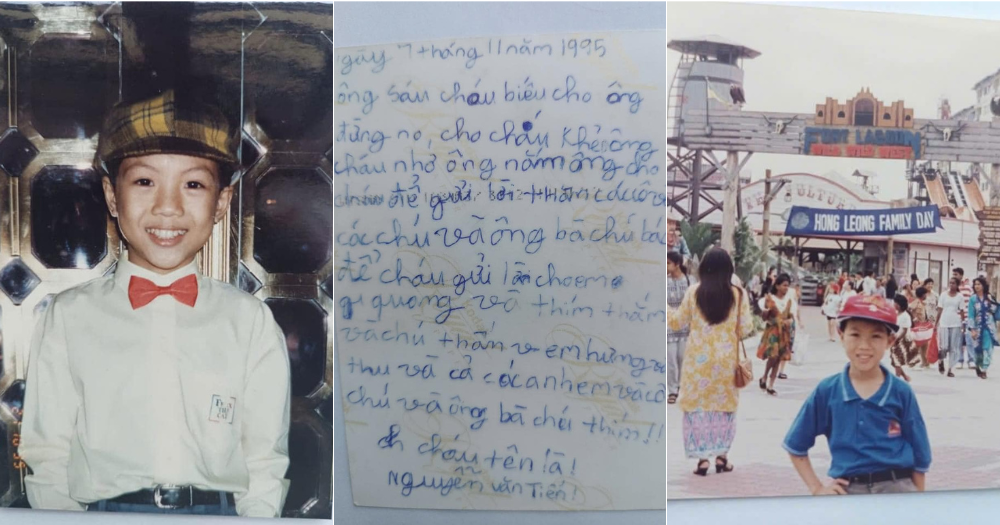 gày 7 tháng 11 năm 1995
ông sáu cháu biếu cho ông
đừng nọ, cho cháu khẻ ông
cháu nhớ ông nắm ông cho
để gửi lời thăm
các chú và ông bà chú bá
để cháu gửi lần
quang và thím thắm
và chú thắn v em hưng
thu và cả các anh em và cô
chú và ông bà chú thím!!
ch cháu tên là!
Nguyễn văn Tiến!
WILD WILD WEST
HONG LEONG FAMILY DAY